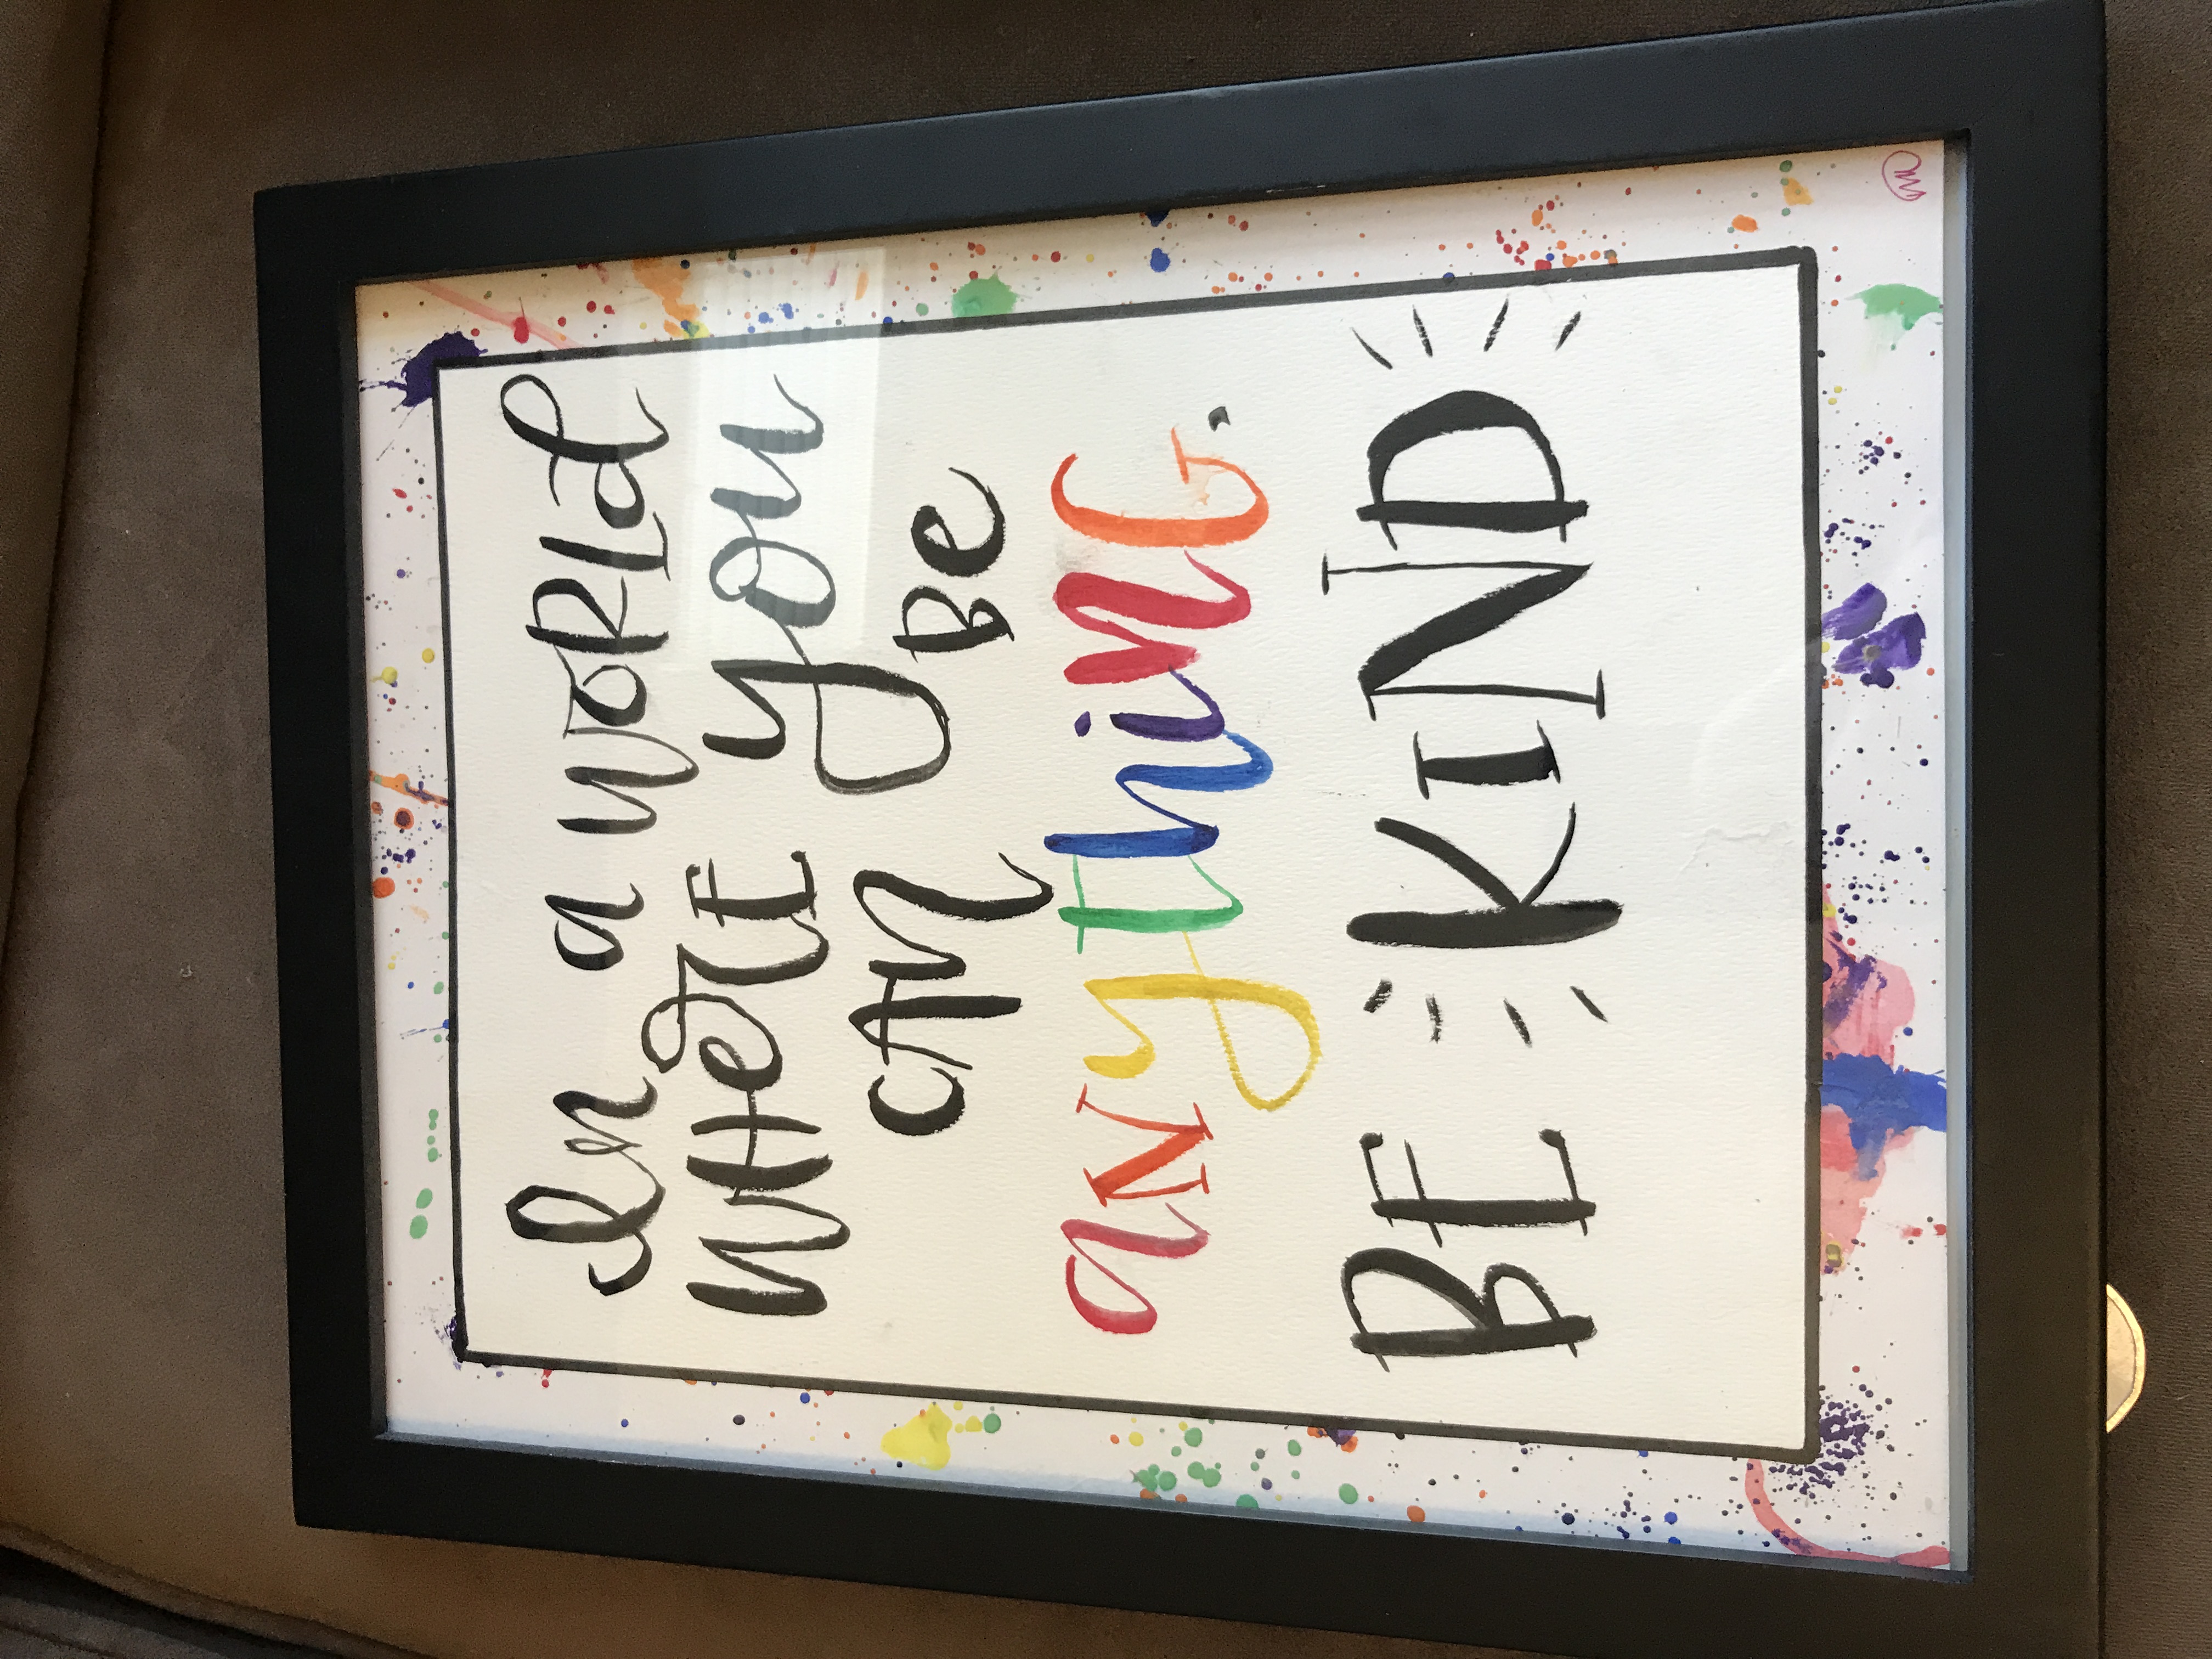 In a woRld
wHeRe you
cAn Be
aNythinG.
BE KIND